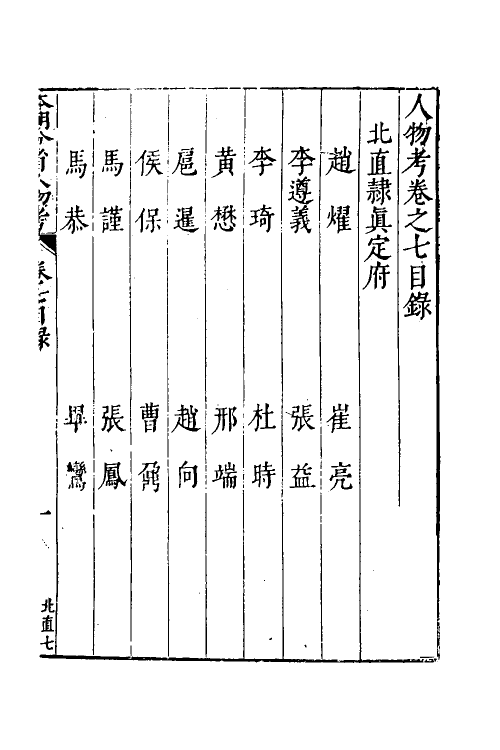 人物考卷之七目錄
北直隸眞定府
趙燿 崔亮
李遵義 張益
李琦 杜時
黃懋 邢端
扈暹 趙向
侯保 曹鼐
馬謹 張鳳
馬恭 畢鸞
本朝分省人物考 卷七目錄 一 北直七